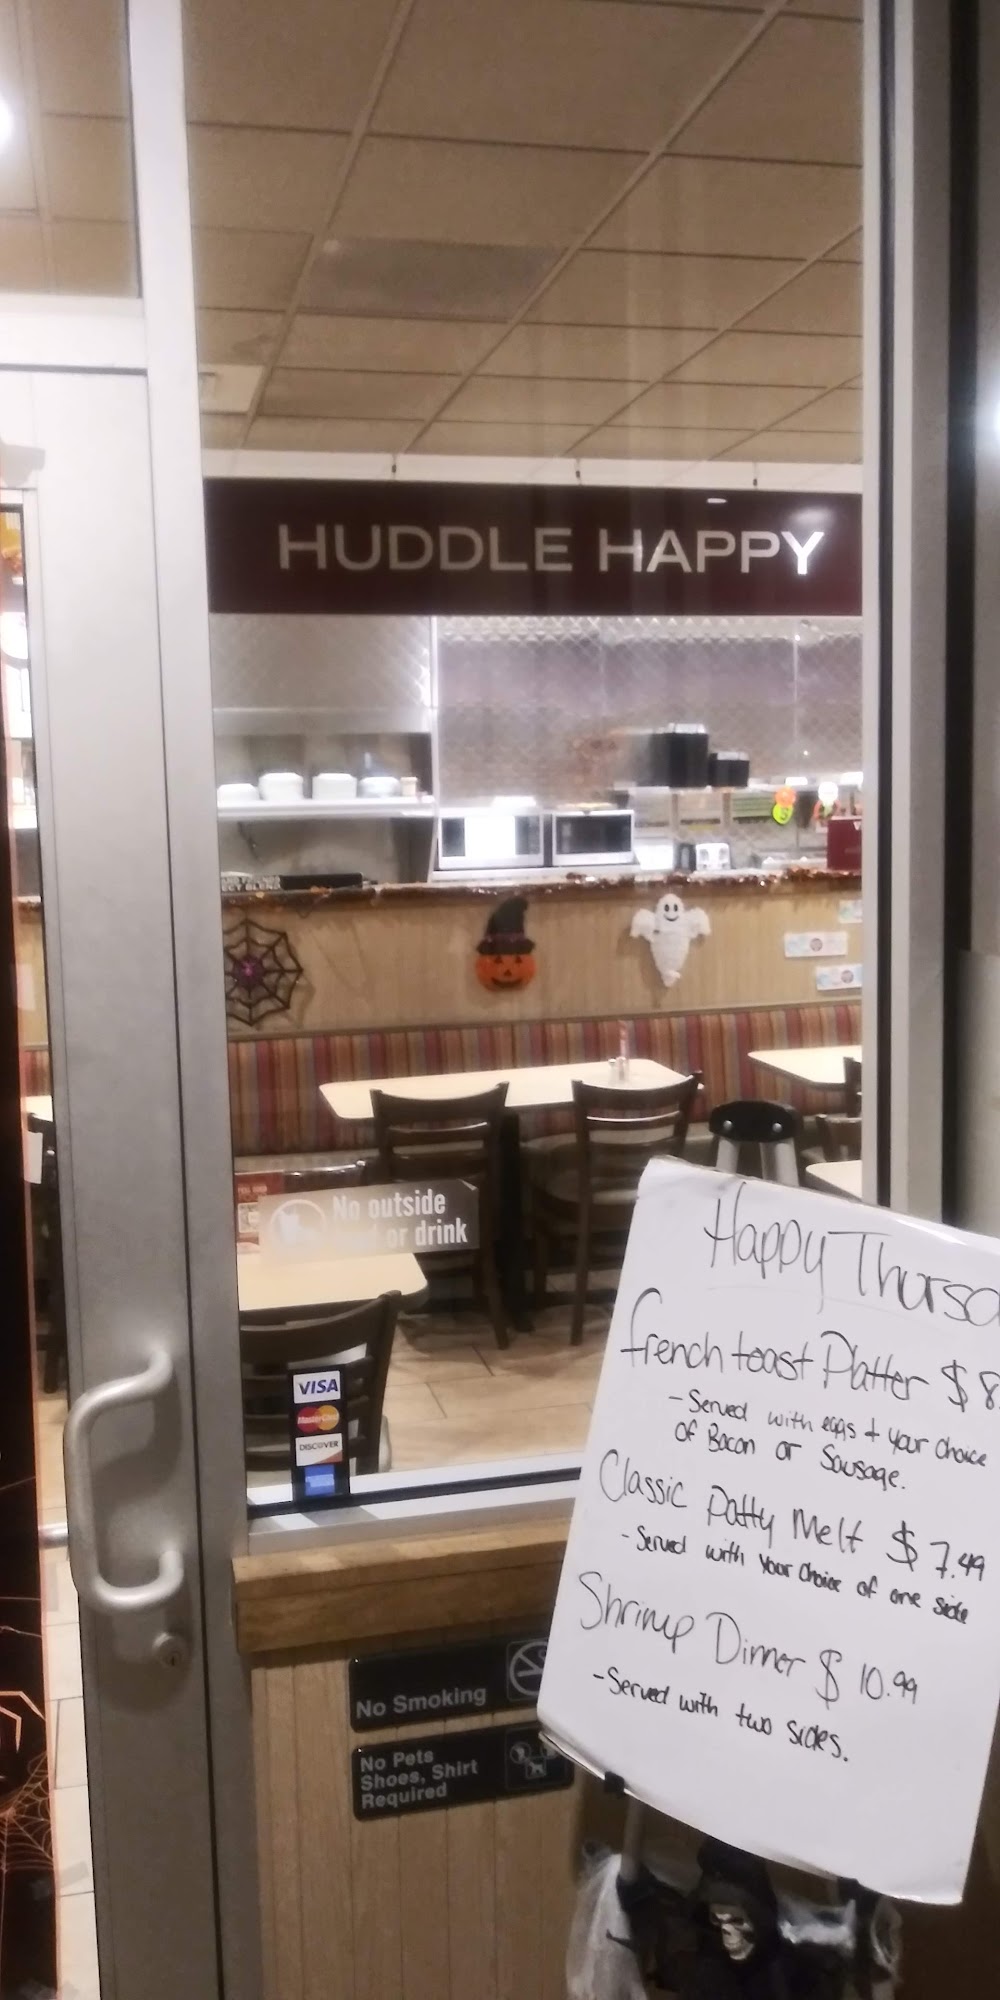 HUDDLE HAPPY
No outside
or drink
VISA
MasterCard
DISCOVER
Happy
French toast Platter $ 8.
- Served with eggs + your choice
of Bacon or Sausage.
Classic Patty Melt $ 7.49
- Served with your choice of one side
Shrimp Dinner $ 10.99
- Served with two sides.
No Smoking
No Pets
Shoes, Shirt
Required